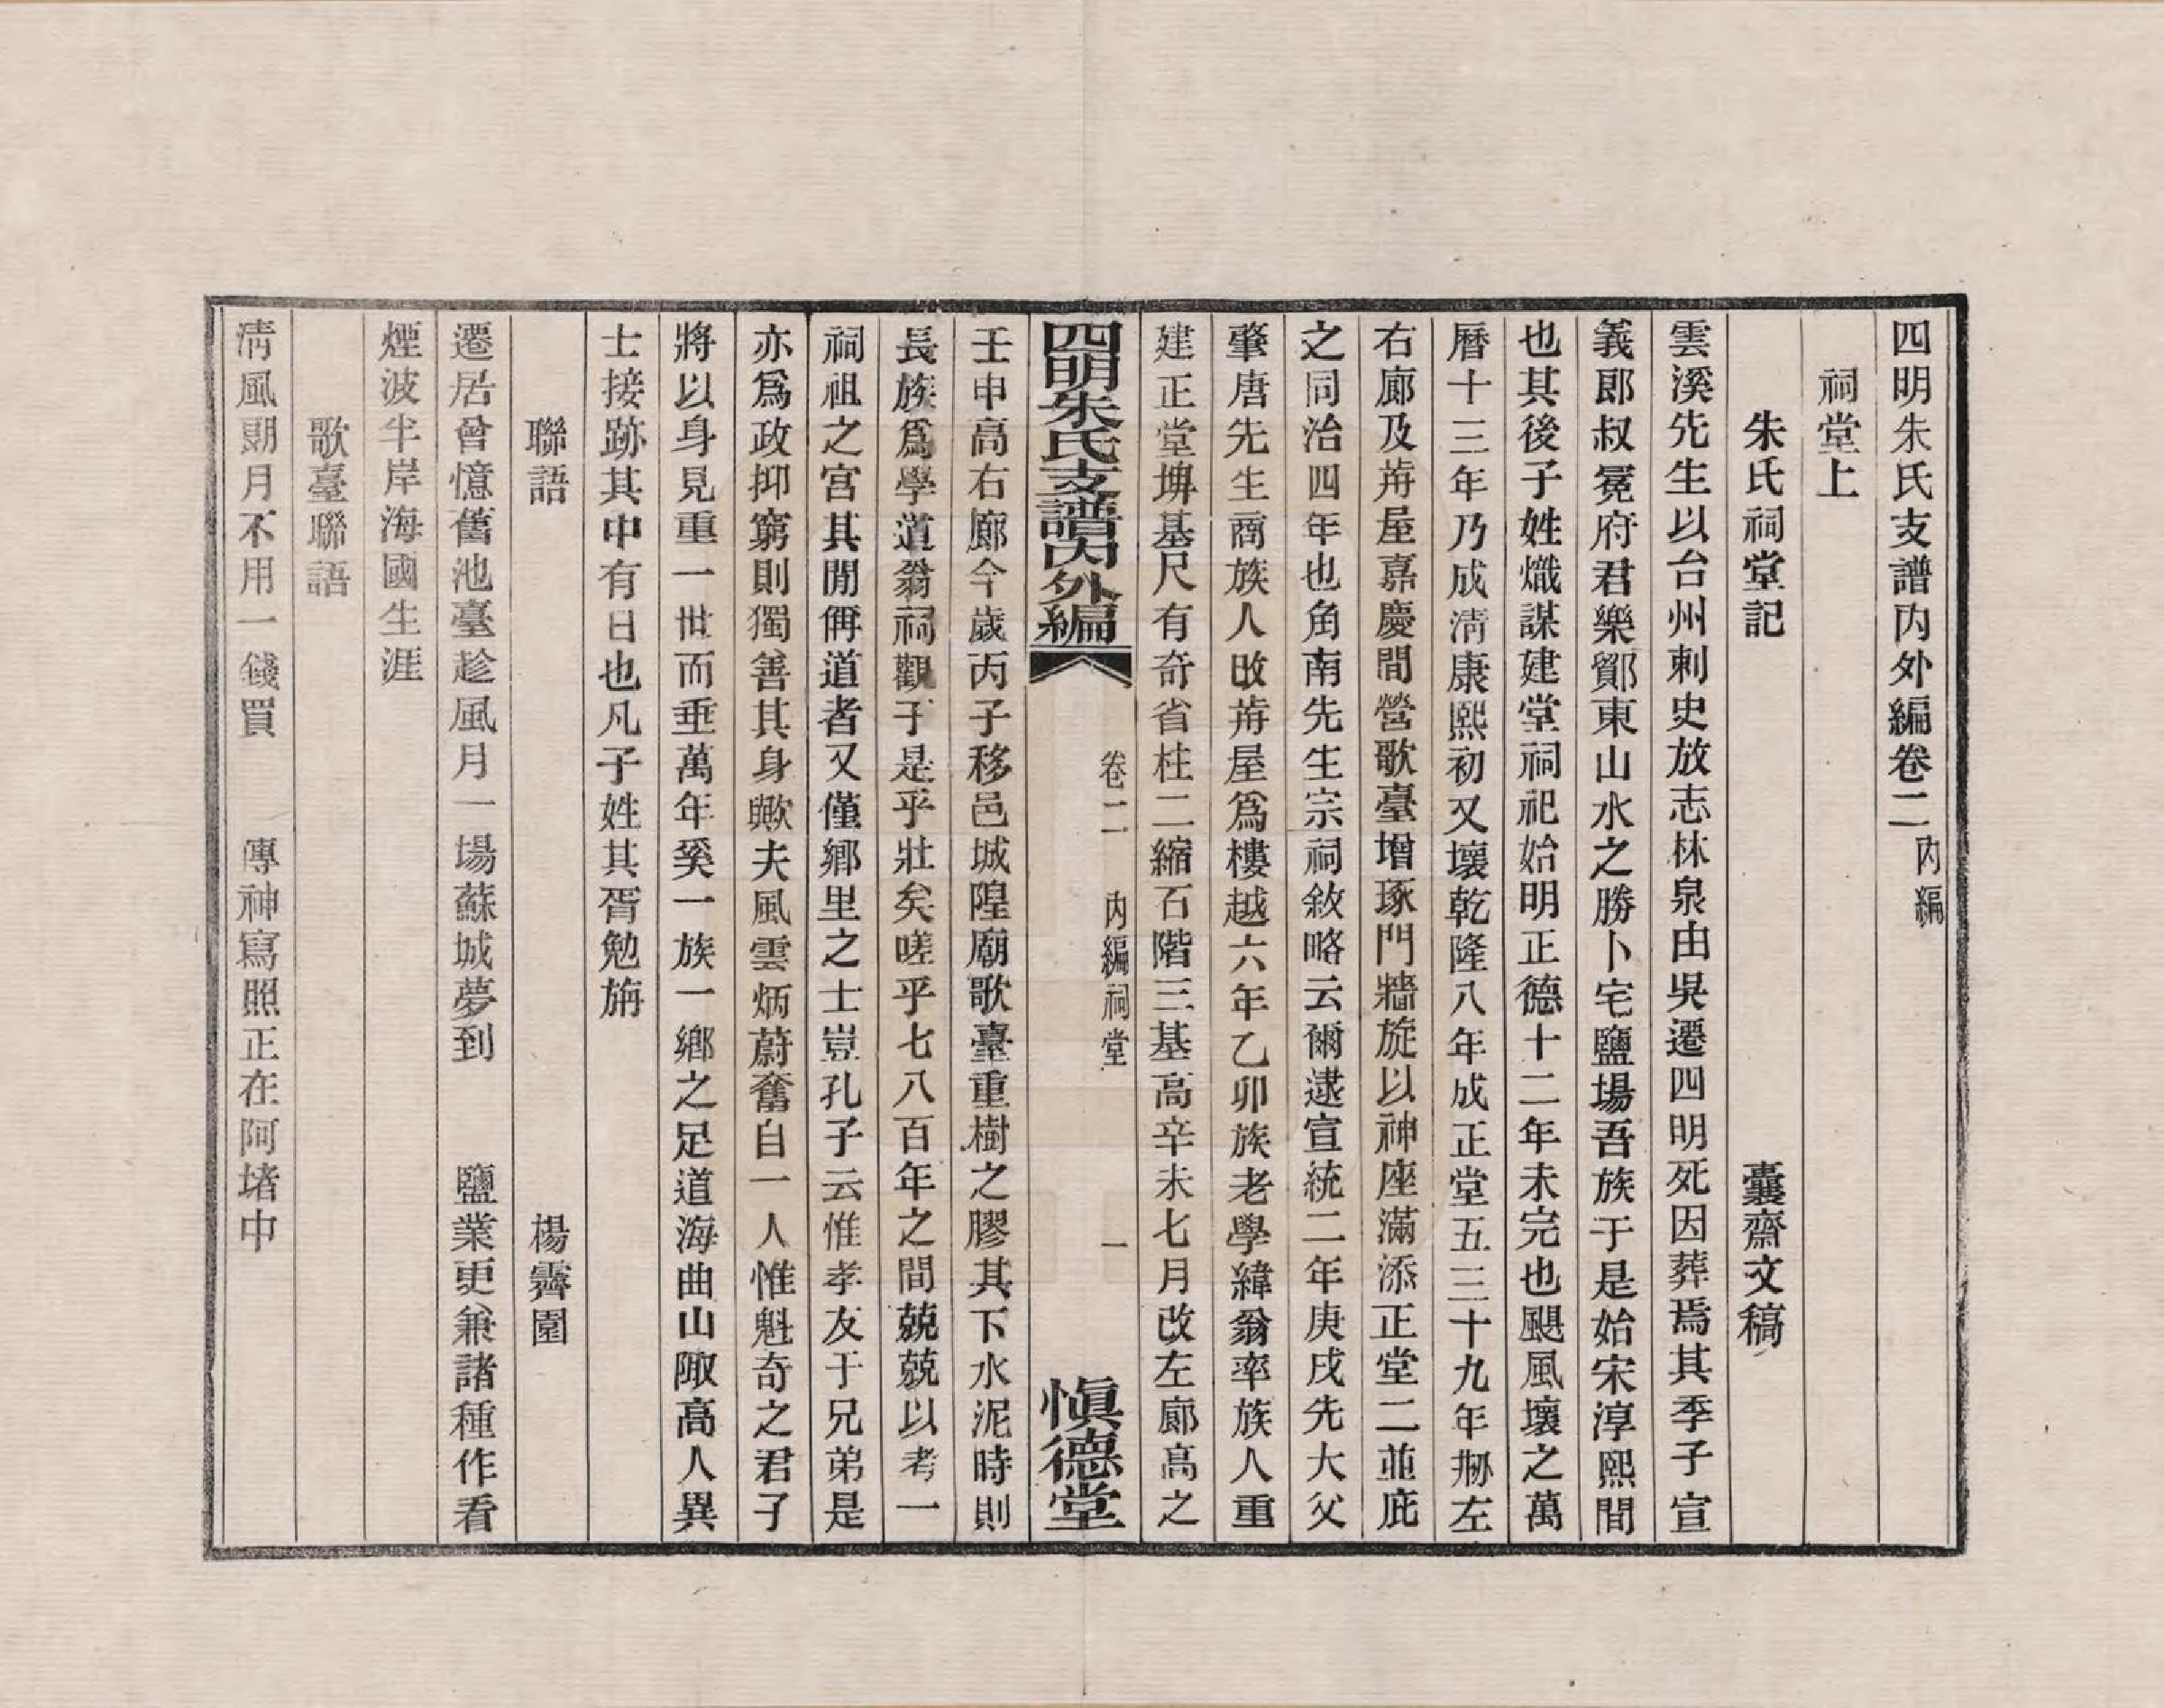 四明朱氏支譜內外編卷二 內編
祠堂上
朱氏祠堂記 囊齋文稿
雲溪先生以台州刺史放志林泉由吳遷四明死因葬焉其季子宣
義郎叔冕府君樂鄮東山水之勝卜宅鹽場吾族于是始宋淳熙間
也其後子姓熾謀建堂祠祀始明正德十二年未完也颶風壞之萬
曆十三年乃成淸康熙初又壞乾隆八年成正堂五三十九年剏左
右廊及荐屋嘉慶間營歌臺增琢門牆旋以神座滿添正堂二並庇
之同治四年也角南先生宗祠敘略云爾逮宣統二年庚戌先大父
肇唐先生商族人改荐屋爲樓越六年乙卯族老學緯翁率族人重
建正堂埤基尺有奇省柱二縮石階三基高辛未七月改左廊高之
四明朱氏支譜內外編 卷二 內編祠堂 一 愼德堂
壬申高右廊今歲丙子移邑城隍廟歌臺重樹之膠其下水泥時則
長族爲學道翁祠觀于是乎壯矣嗟乎七八百年之間兢兢以考一
祠祖之宮其閒偁道者又僅鄉里之士豈孔子云惟孝友于兄弟是
亦爲政抑窮則獨善其身歟夫風雲炳蔚奮自一人惟魁奇之君子
將以身見重一世而垂萬年奚一族一鄉之足道海曲山陬高人異
士接跡其中有日也凡子姓其胥勉旃
聯語 楊霽園
遷居曾憶舊池臺趁風月一場蘇城夢到 鹽業更兼諸種作看
煙波半岸海國生涯
歌臺聯語
淸風朗月不用一錢買 傳神寫照正在阿堵中